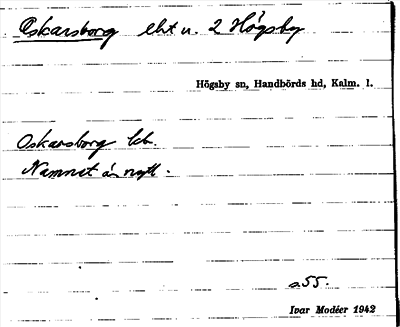 Oskarsborg eht u. 2 Högsby
Högsby sn, Handbörds hd, Kalm. l.
Oskarsborg
Namnet är nytt.
a55.
Ivar Modéer 1942